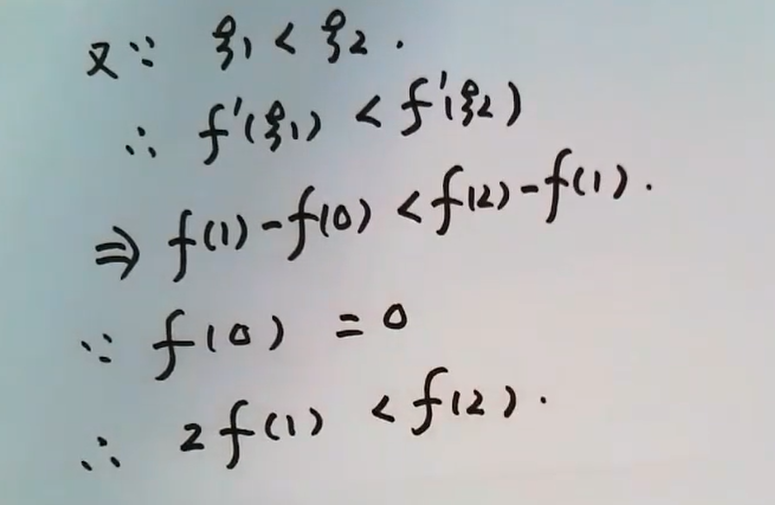 又∵ ξ₁ < ξ₂.
∴ f'(ξ₁) < f'(ξ₂)
⇒ f(1)-f(0) < f(2)-f(1).
∵ f(0) = 0
∴ 2f(1) < f(2).